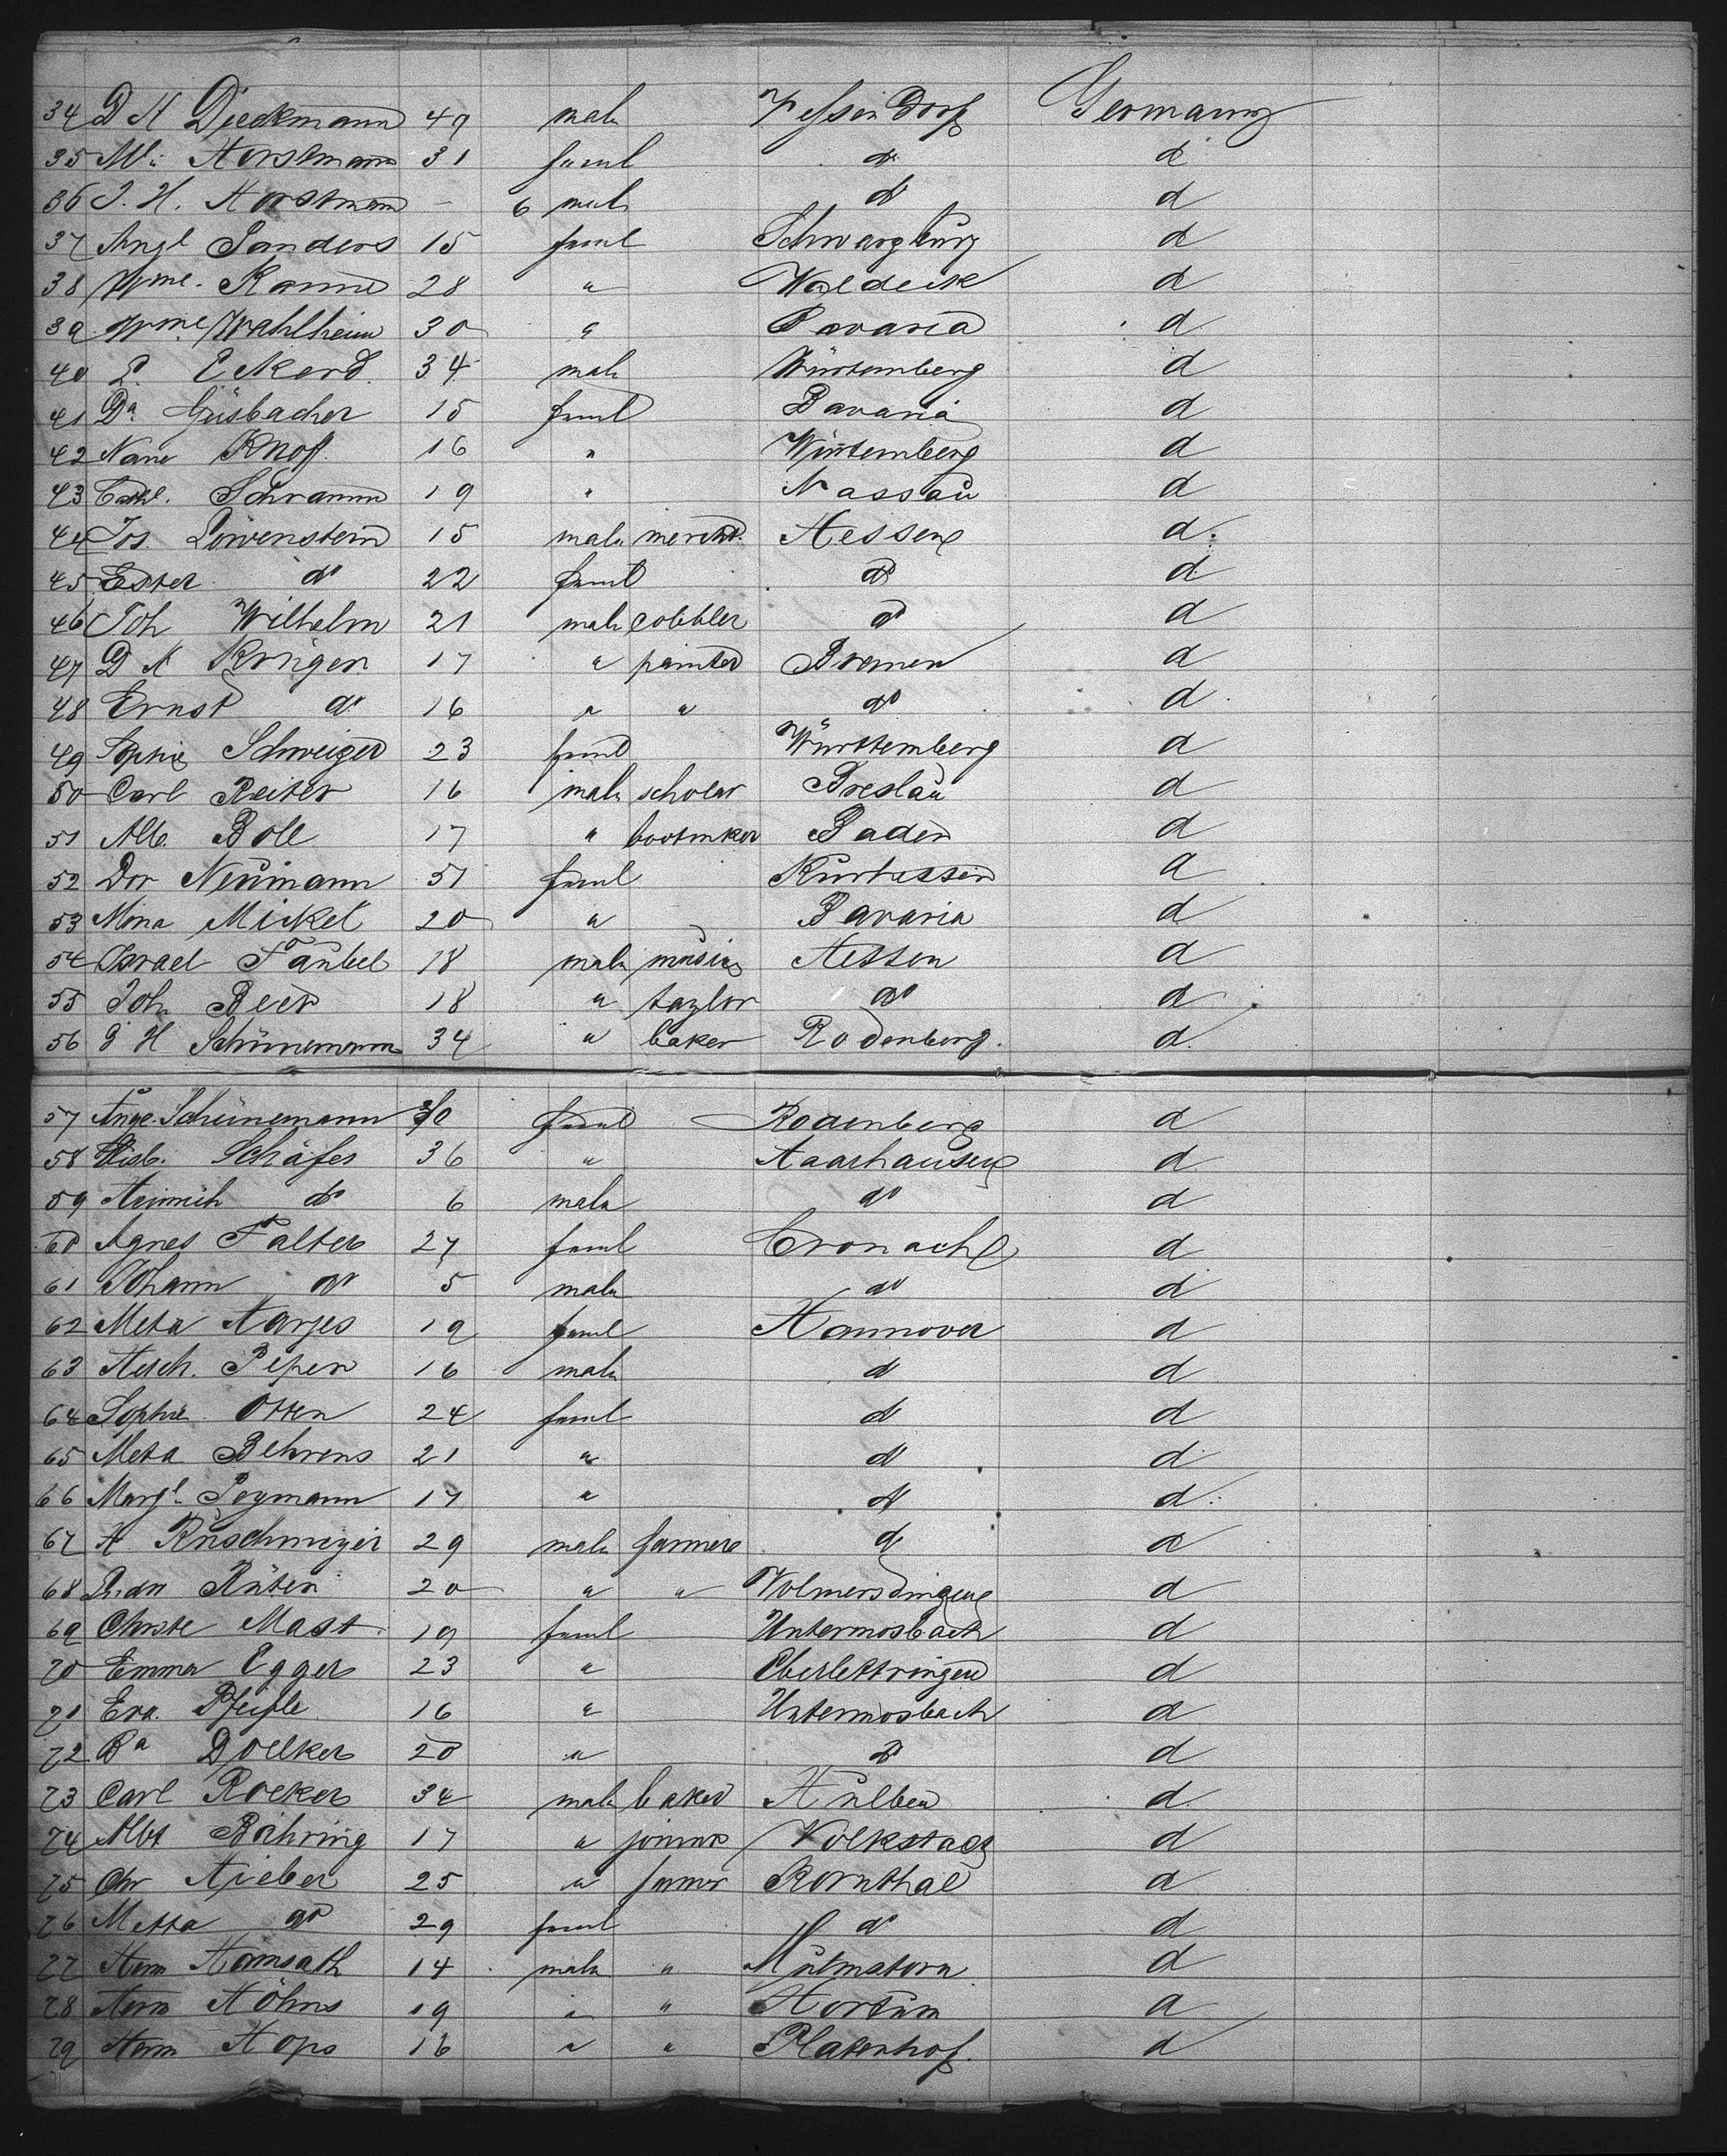 34 D H Dieckmann 49 male Hessen Dorf Germany
35 M. Horstmann 31 feml do d
36 J. H. Horstmann - 6 male do d
37 Angl Sanders 15 feml Schwarzburg d
38 Wme. Kanne 28 " Waldeck d
39 Wme. Wahlheim 30 " Bavaria d
40 L. Eckerd 34 male Würtemberg d
41 Da Geisbacher 15 feml Bavaria d
42 Nane Knoff 16 " Würtemberg d
43 Cathl. Schramm 19 " Nassau d
44 Jos. Löwenstein 15 male mercht. Hessen d
45 Ester do 22 feml do d
46 Joh Wilhelm 21 male cobbler do d
47 D H Krüger 17 " painter Bremen d
48 Ernst do 16 " " do d
49 Sophie Schweizer 23 feml Würtemberg d
50 Carl Reiter 16 male scholar Breslau d
51 Alb. Boll 17 " bootmker Baden d
52 Dor Neumann 51 feml Kurhessen d
53 Mina Mickel 20 " Bavaria d
54 Israel Faubel 18 male music Hessen d
55 Joh Beck 18 " taylor do d
56 G H Schünemann 34 " baker Rodenberg d
57 Ange. Schünemann feml Rodenberg d
58 Elisb. Schäfer 36 " Haarhausen d
59 Heinrich do 6 male do d
60 Agnes Falter 27 feml Cronach d
61 Johann do 5 male do d
62 Meta Harjes 19 feml Hannover d
63 Hch. Peper 16 male d d
64 Sophie Otten 24 feml d d
65 Meta Behrens 21 " d d
66 Margt. Poymann 17 " d d
67 H. Ruschmeyer 29 male farmer d d
68 Rüter 20 " " Volmerdingen d
69 Christe Mast 19 feml Untermosbach d
70 Emma Egger 23 " Oberlettringen d
71 Eva Pfeifle 16 " Untermosbach d
72 Ba Doelker 20 " do d
73 Carl Rocker 34 male baker Hülben d
74 Albt Böhring 17 " joiner Volkstadt d
75 Chr Hieber 25 " farmer Kornthal d
76 Metta do 29 feml do d
77 Herm Hamsath 14 male " d
78 Herm Höhns 19 " " Hortum d
79 Herm Hops 16 " " Platenhof d